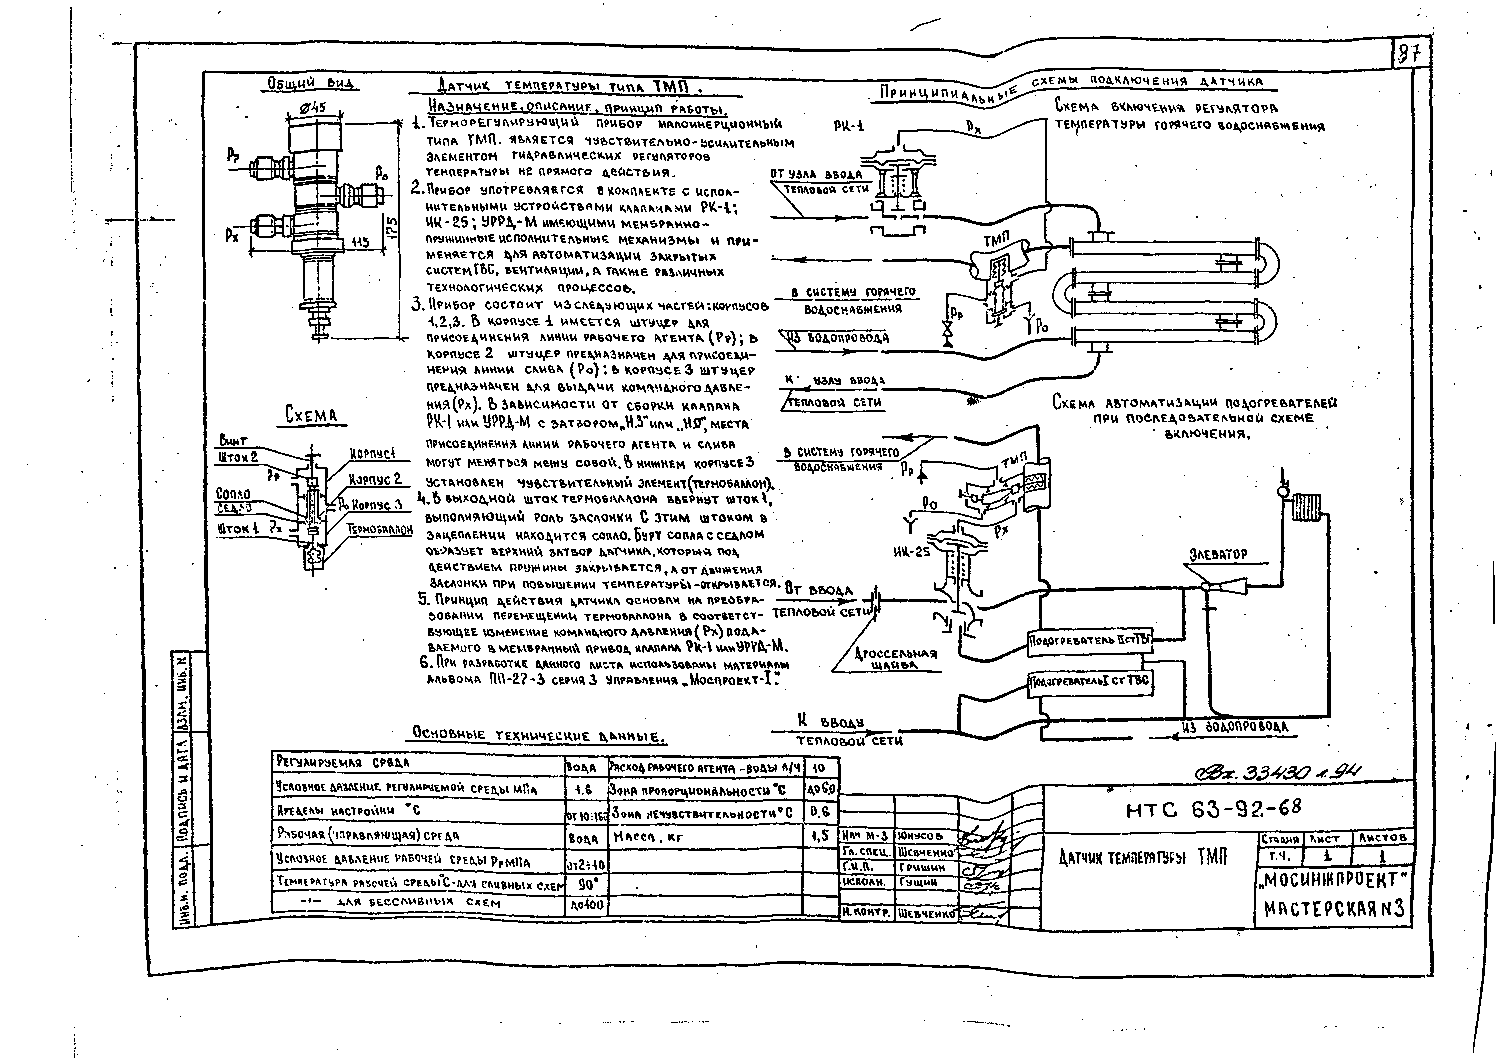 87
Общий вид
Ø45
Рр
Ро
Рх
115
175
Схема
Винт
Шток 2
Рр
Сопло
Седло
Шток 1
Рх
Корпус 1
Корпус 2
Ро
Корпус 3
Термобаллон
Датчик температуры типа ТМП.
Назначение, описание, принцип работы.
1. Терморегулирующий прибор малоинерционный
типа ТМП. является чувствительно-усилительным
элементом гидравлических регуляторов
температуры не прямого действия.
2. Прибор употребляется в комплекте с испол-
нительными устройствами клапанами РК-1;
ИК-25; УРРД-М имеющими мембранно-
пружинные исполнительные механизмы и при-
меняется для автоматизации закрытых
систем ГВС, вентиляции, а также различных
технологических процессов.
3. Прибор состоит из следующих частей: корпусов
1,2,3. В корпусе 1 имеется штуцер для
присоединения линии рабочего агента (Рр); в
корпусе 2 штуцер предназначен для присоеди-
нения линии слива (Ро); в корпусе 3 штуцер
предназначен для выдачи командного давле-
ния (Рх). В зависимости от сборки клапана
РК-1 или УРРД-М с затвором „НЗ" или „НО", места
присоединения линии рабочего агента и слива
могут меняться межу совой. В нижнем корпусе 3
установлен чувствительный элемент (термобаллон).
4. В выходной шток термобаллона ввернут шток 1,
выполняющий роль заслонки С этим штоком в
зацеплении находится сопло. Бурт сопла с седлом
образует верхний затвор датчика, который под
действием пружины закрывается, а от движения
заслонки при повышении температуры-открывается.
5. Принцип действия датчика основан на преобра-
зовании перемещении термобаллона в соответст-
вующее изменение командного давления (Рх) пода-
ваемого в мембранный привод клапана РК-1 или УРРД-М.
6. При разработке данного листа использованы материалы
альбома ПП-27-3 серия 3 управления „Моспроект-1".
Принципиальные схемы подключения датчика
Схема включения регулятора
температуры горячего водоснабжения
РК-1
Рх
От узла ввода
тепловой сети
ТМП
В систему горячего
водоснабжения
Рр
Ро
Из водопровода
К узлу ввода
тепловой сети
Схема автоматизации подогревателей
при последовательной схеме
включения.
В систему горячего
водоснабжения
Рр
ТМП
Ро
Рх
ИК-25
Элеватор
От ввода
тепловой сети
Дроссельная
шайба
Подогреватель II ст ГВС
Подогреватель I ст ГВС
К вводу
тепловой сети
Из водопровода
Основные технические данные.
Регулируемая среда вода Расход рабочего агента - воды л/ч 10
Условное давление регулируемой среды МПа 1.6 Зона пропорциональности °С до 6,0
Пределы настройки °С Зона нечувствительности °С 0,6
Рабочая (управляющая) среда вода Масса, кг 1,5
Условное давление рабочей среды Рр МПа
Температура рабочей среды °С-для сливных схем 90°
-"- для бессливных схем до 100
Вх. 33430 л. 94
НТС 63-92-68
Нач М-3 Юнусов
Гл. спец. Шевченко
Г.И.П. Гришин
Исполн. Гущин
Н. контр. Шевченко
Датчик температуры ТМП
Стадия Лист Листов
Т.Ч. 1 1
„Мосинжпроект"
Мастерская N3
Инв. N подл. Подпись и дата Взам. инв. N